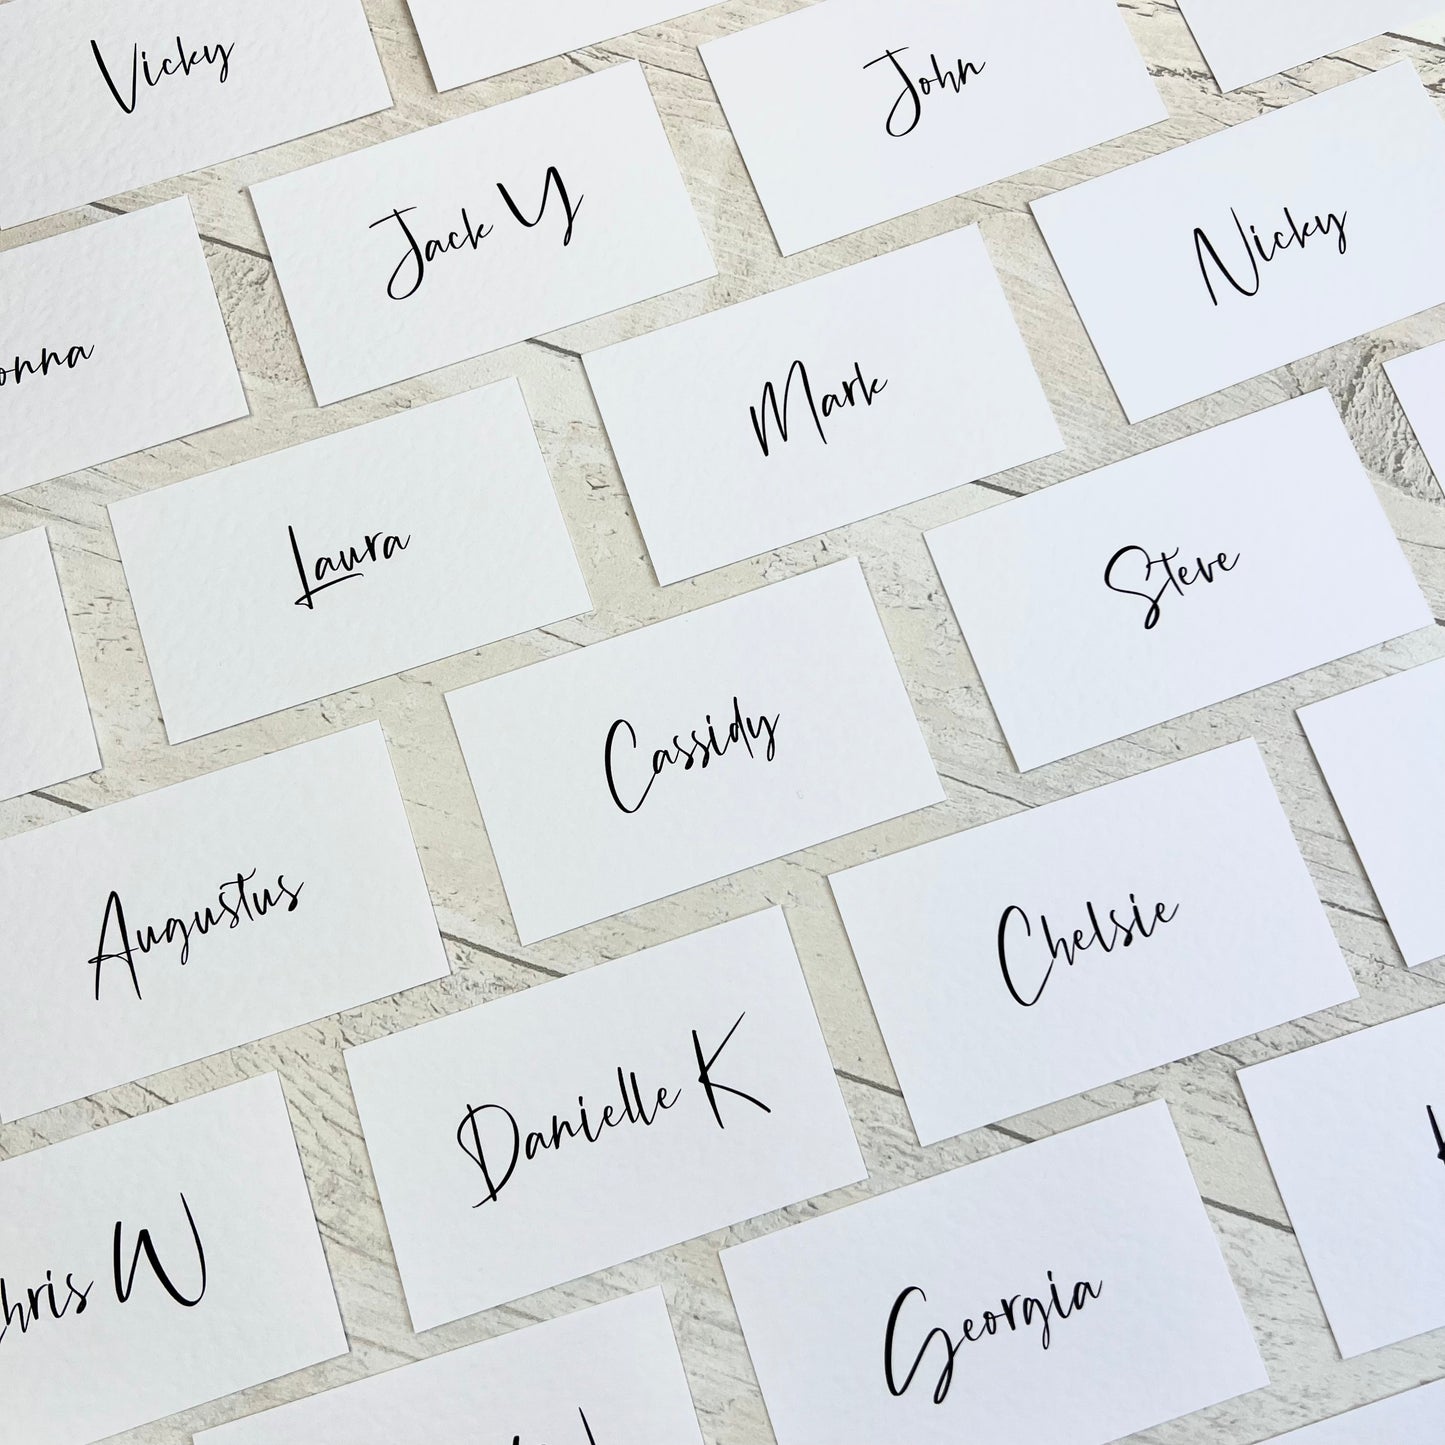 Vicky
John
Jack Y
Nicky
onna
Mark
Laura
Steve
Cassidy
Augustus
Chelsie
Danielle K
hris W
Georgia